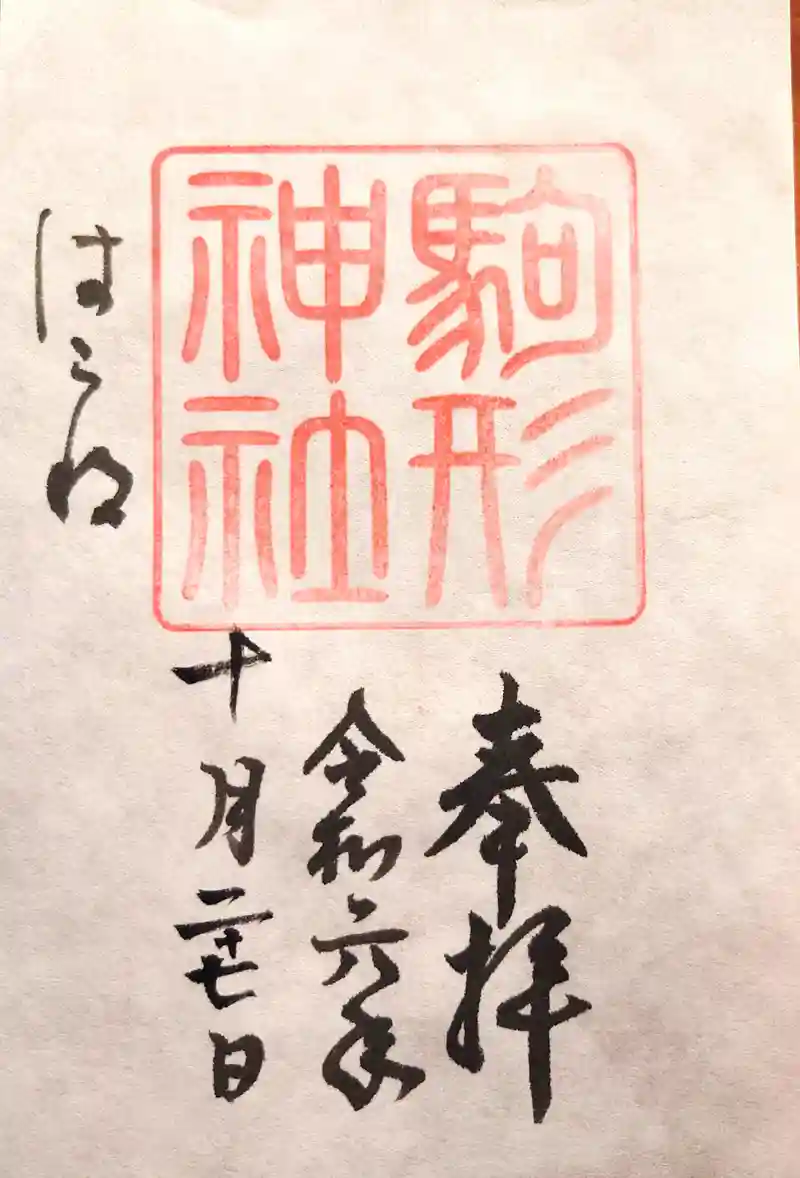 駒形
神社
奉拝
令和六年
十月二十七日
はこね